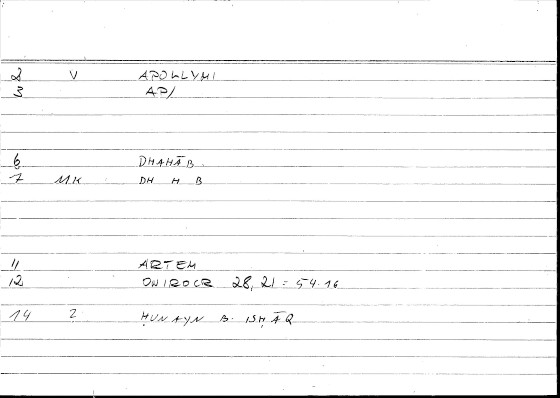 2 V APOLLYMI
3 AP/
6 DHAHĀB
7 MK DH H B
11 ARTEM
12 ONIROCR 28, 21 = 54.16
14 2 ḤUNAYN B. ISḤĀQ